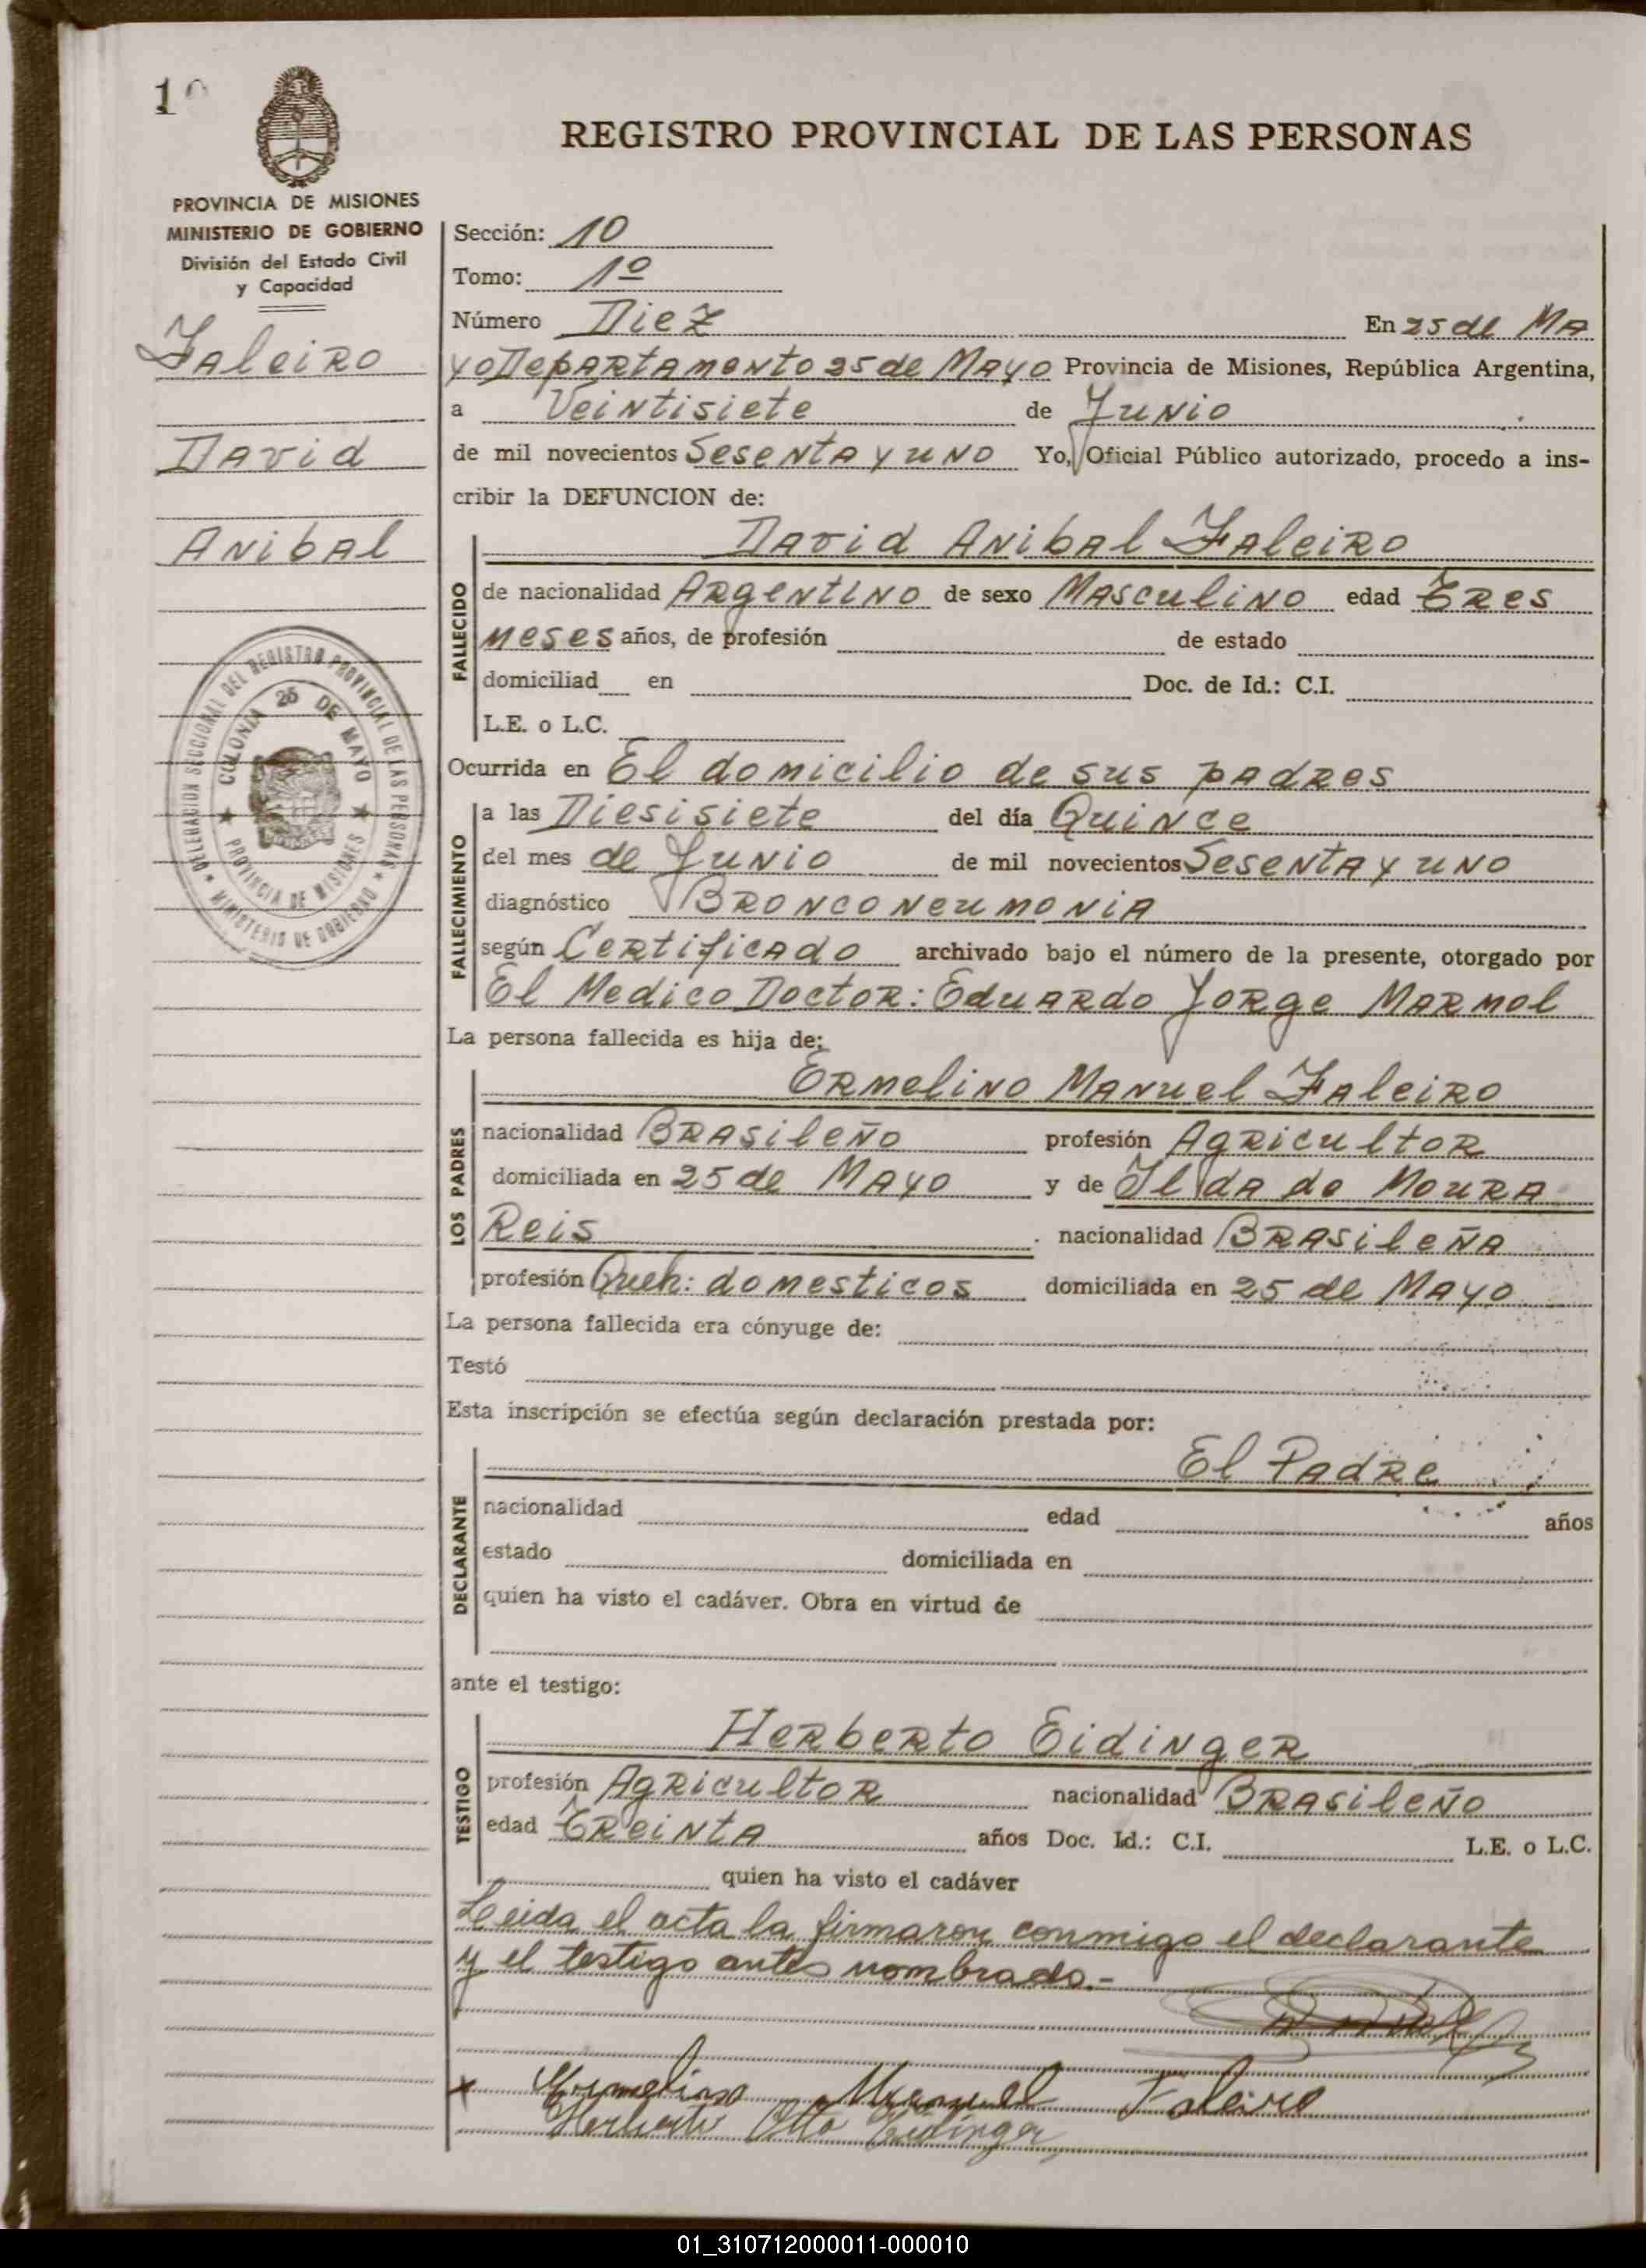 10
REGISTRO PROVINCIAL DE LAS PERSONAS
PROVINCIA DE MISIONES
MINISTERIO DE GOBIERNO
División del Estado Civil
y Capacidad
Faleiro
David
Anibal
DELEGACION SECCIONAL DEL REGISTRO PROVINCIAL DE LAS PERSONAS
MINISTERIO DE GOBIERNO
COLONIA 25 DE MAYO
PROVINCIA DE MISIONES
Sección: 10
Tomo: 1º
Número Diez En 25 de Ma
yo Departamento 25 de Mayo Provincia de Misiones, República Argentina,
a Veintisiete de Junio
de mil novecientos Sesenta y uno Yo, Oficial Público autorizado, procedo a ins-
cribir la DEFUNCION de:
FALLECIDO
David Anibal Faleiro
de nacionalidad Argentino de sexo Masculino edad Tres
meses años, de profesión de estado
domiciliad en Doc. de Id.: C.I.
L.E. o L.C.
Ocurrida en El domicilio de sus padres
FALLECIMIENTO
a las Diesisiete del día Quince
del mes de Junio de mil novecientos Sesenta y uno
diagnóstico Bronconeumonia
según Certificado archivado bajo el número de la presente, otorgado por
El Medico Doctor: Eduardo Jorge Marmol
La persona fallecida es hija de:
LOS PADRES
Ermelino Manuel Faleiro
nacionalidad Brasileño profesión Agricultor
domiciliada en 25 de Mayo y de Ilda do Moura
Reis nacionalidad Brasileña
profesión Queh: domesticos domiciliada en 25 de Mayo
La persona fallecida era cónyuge de:
Testó
Esta inscripción se efectúa según declaración prestada por:
DECLARANTE
El Padre
nacionalidad edad años
estado domiciliada en
quien ha visto el cadáver. Obra en virtud de
ante el testigo:
TESTIGO
Herberto Eidinger
profesión Agricultor nacionalidad Brasileño
edad Treinta años Doc. Id.: C.I. L.E. o L.C.
quien ha visto el cadáver
Leida el acta la firmaron conmigo el declarante
y el testigo antes nombrado.-
x Ermelino Manuel Faleiro
Herberto Otto Eidinger
01_310712000011-000010